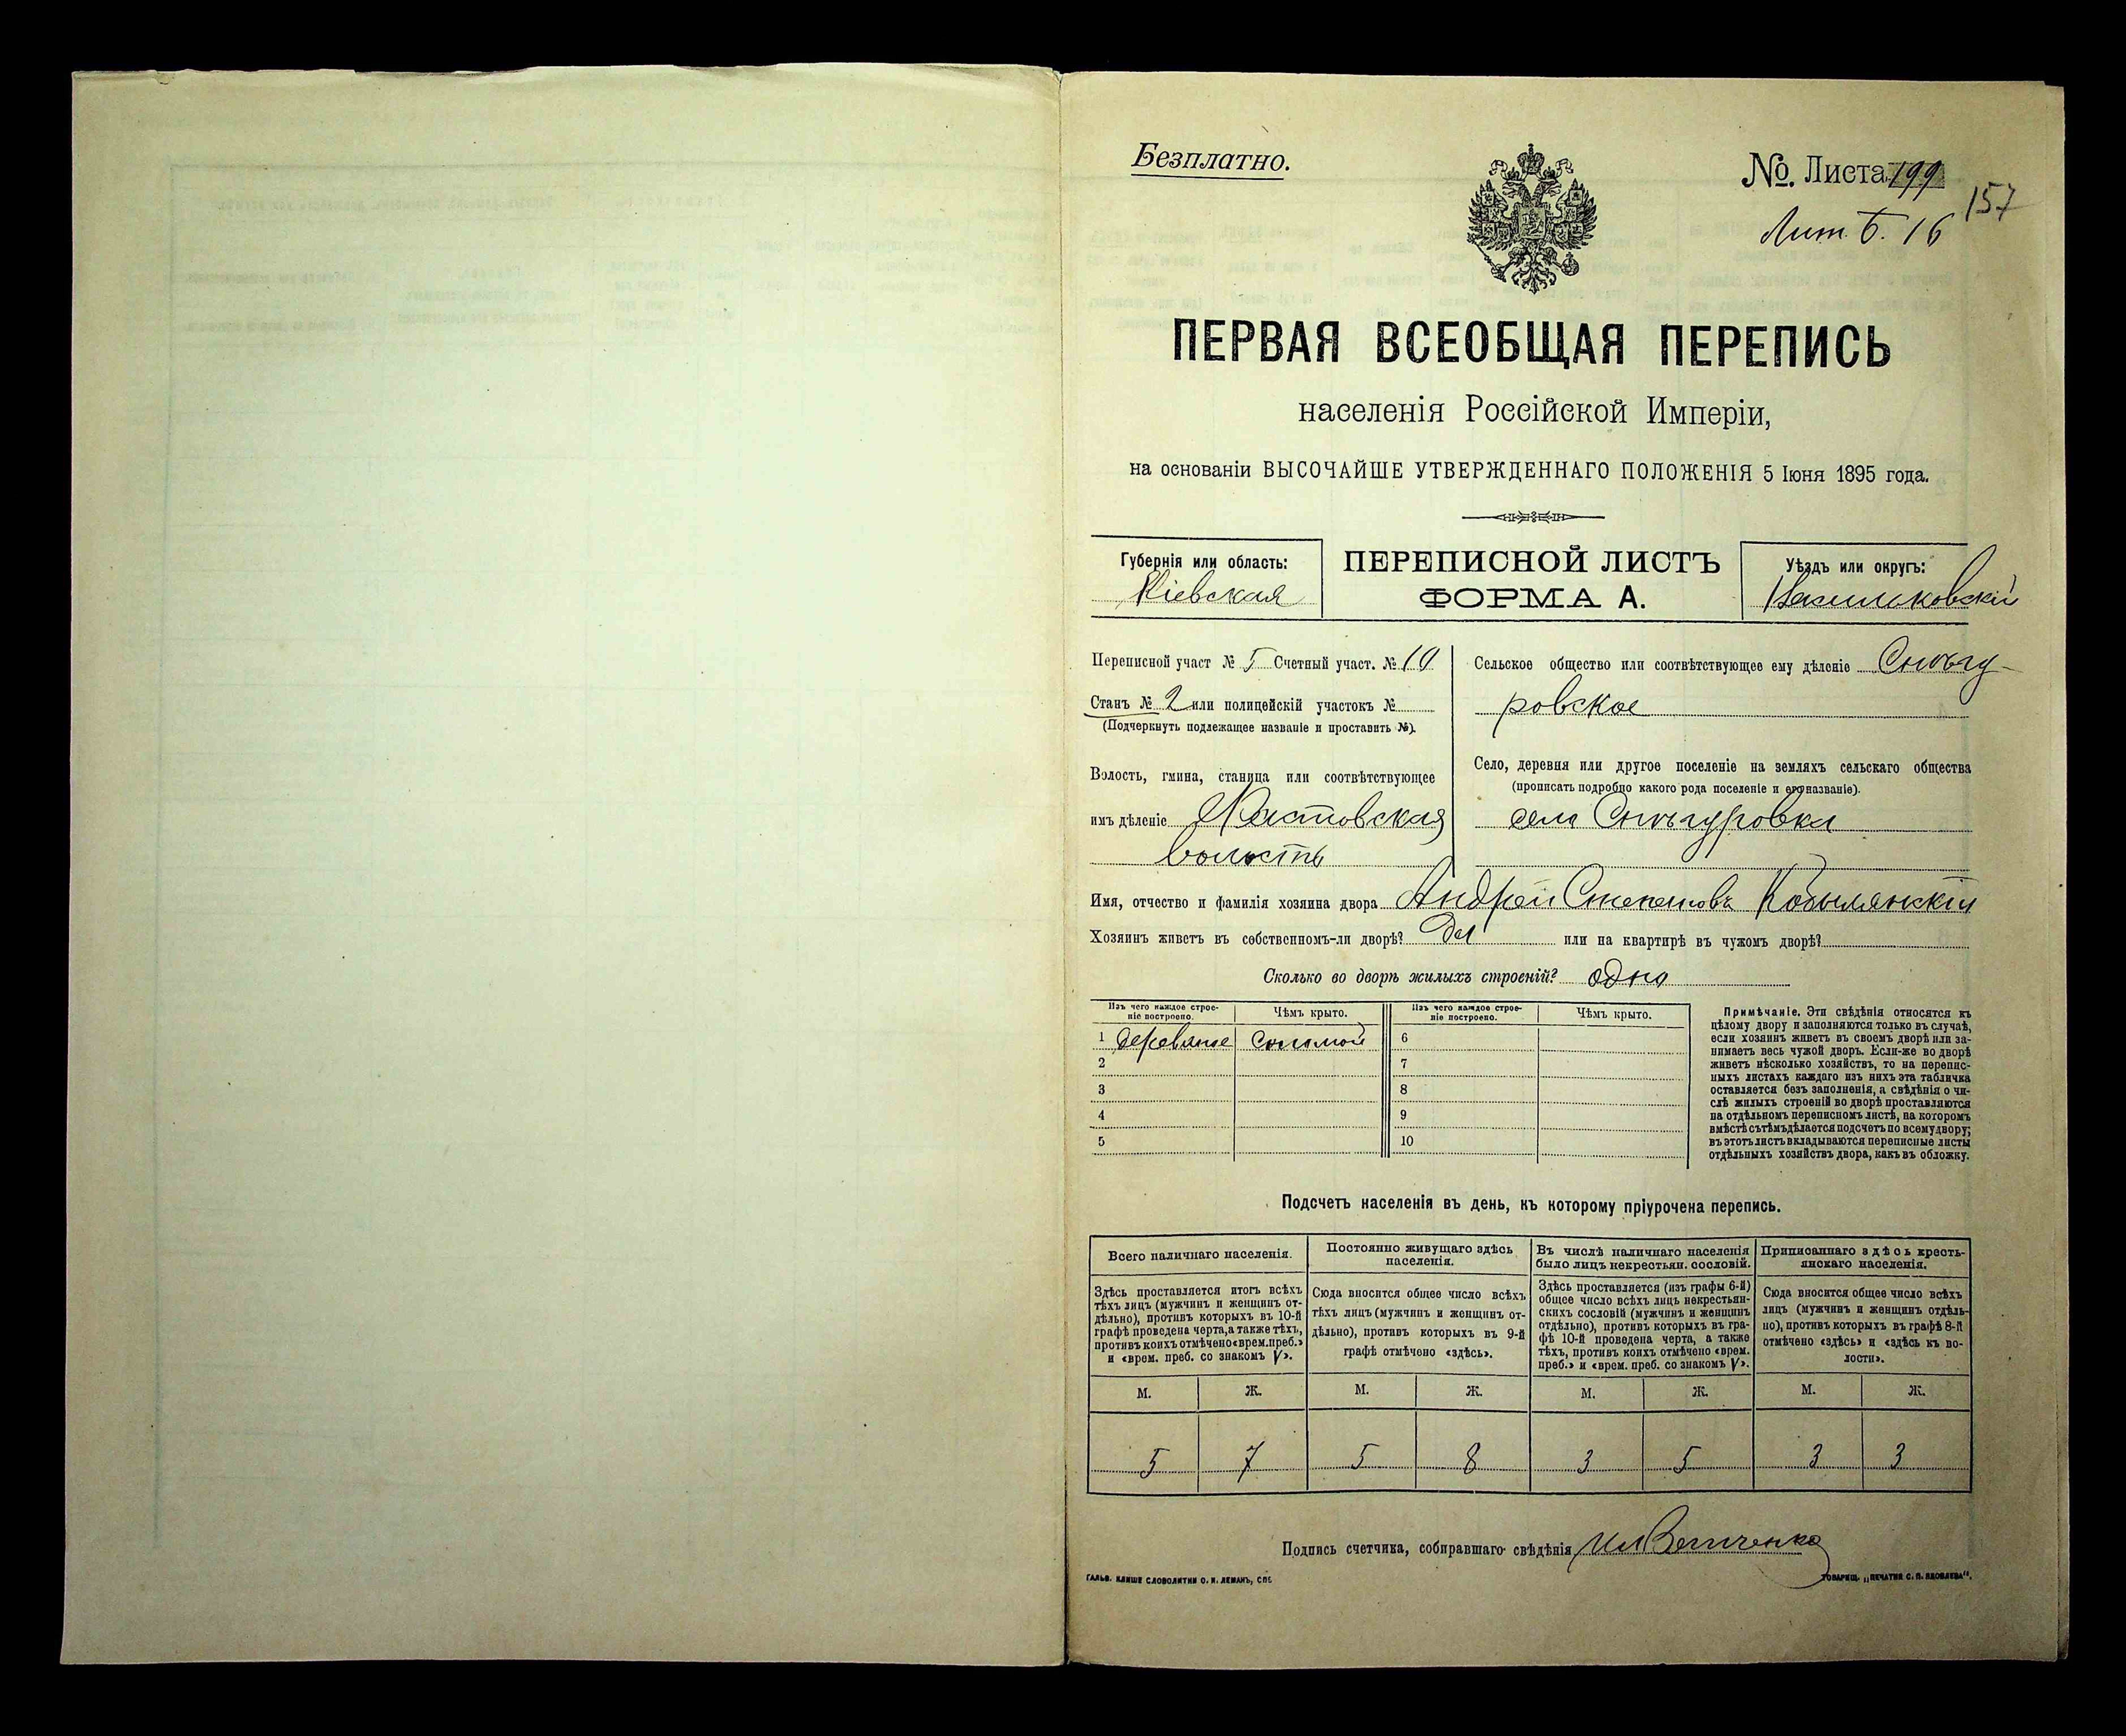 Безплатно.
№. Листа 199
157
Лит. Б. 16
ПЕРВАЯ ВСЕОБЩАЯ ПЕРЕПИСЬ
населенія Россійской Имперіи,
на основаніи ВЫСОЧАЙШЕ УТВЕРЖДЕННАГО ПОЛОЖЕНІЯ 5 Іюня 1895 года.
Губернія или область:
Кіевская
ПЕРЕПИСНОЙ ЛИСТЪ
ФОРМА А.
Уѣздъ или округъ:
Васильковскій
Переписной участ № 5 Счетный участ. № 10
Станъ № 2 или полицейскій участокъ №
(Подчеркнуть подлежащее названіе и проставить №).
Волость, гмина, станица или соотвѣтствующее
имъ дѣленіе Хвастовская
волость
Сельское общество или соотвѣтствующее ему дѣленіе Снѣгу-
ровское
Село, деревня или другое поселеніе на земляхъ сельскаго общества
(прописать подробно какого рода поселеніе и его названіе).
село Снѣгуровка
Имя, отчество и фамилія хозяина двора Андрей Степановъ Кобылянскій
Хозяинъ живетъ въ собственномъ-ли дворѣ? Да или на квартирѣ въ чужомъ дворѣ?
Сколько во дворѣ жилыхъ строеній? одно
Изъ чего каждое строе-
ніе построено.
Чѣмъ крыто.
Изъ чего каждое строе-
ніе построено.
Чѣмъ крыто.
1 деревяное соломой 6
2 7
3 8
4 9
5 10
Примѣчаніе. Эти свѣдѣнія относятся къ
цѣлому двору и заполняются только въ случаѣ,
если хозяинъ живетъ въ своемъ дворѣ или за-
нимаетъ весь чужой дворъ. Если-же во дворѣ
живетъ нѣсколько хозяйствъ, то на перепис-
ныхъ листахъ каждаго изъ нихъ эта табличка
оставляется безъ заполненія, а свѣдѣнія о чи-
слѣ жилыхъ строеній во дворѣ проставляются
на отдѣльномъ переписномъ листѣ, на которомъ
вмѣстѣ съ тѣмъ дѣлается подсчетъ по всему двору;
въ этотъ листъ вкладываются переписные листы
отдѣльныхъ хозяйствъ двора, какъ въ обложку.
Подсчетъ населенія въ день, къ которому пріурочена перепись.
Всего наличнаго населенія.
Здѣсь проставляется итогъ всѣхъ
тѣхъ лицъ (мужчинъ и женщинъ от-
дѣльно), противъ которыхъ въ 10-й
графѣ проведена черта, а также тѣхъ,
противъ коихъ отмѣчено «врем. преб.»
и «врем. преб. со знакомъ V».
Постоянно живущаго здѣсь
населенія.
Сюда вносится общее число всѣхъ
тѣхъ лицъ (мужчинъ и женщинъ от-
дѣльно), противъ которыхъ въ 9-й
графѣ отмѣчено «здѣсь».
Въ числѣ наличнаго населенія
было лицъ некрестьян. сословій.
Здѣсь проставляется (изъ графы 6-й)
общее число всѣхъ лицъ некрестьян-
скихъ сословій (мужчинъ и женщинъ
отдѣльно), противъ которыхъ въ гра-
фѣ 10-й проведена черта, а также
тѣхъ, противъ коихъ отмѣчено «врем.
преб.» и «врем. преб. со знакомъ V».
Приписаннаго здѣсь кресть-
янскаго населенія.
Сюда вносится общее число всѣхъ
лицъ (мужчинъ и женщинъ отдѣль-
но), противъ которыхъ въ графѣ 8-й
отмѣчено «здѣсь» и «здѣсь къ во-
лости».
М. Ж. М. Ж. М. Ж. М. Ж.
5 7 5 8 3 5 3 3
Подпись счетчика, собиравшаго свѣдѣнія
ГАЛЬВ. КЛИШЕ СЛОВОЛИТНИ О. И. ЛЕМАНЪ, СПБ.
ТОВАРИЩ. „ПЕЧАТНЯ С. П. ЯКОВЛЕВА“.